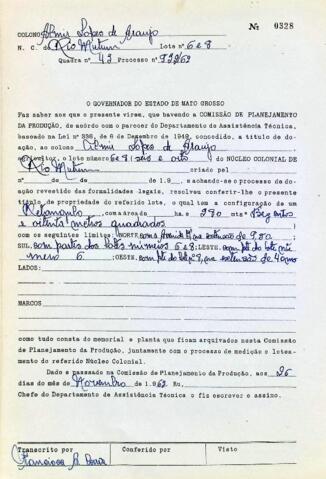 Nº 0328
COLONO Almis Lopes de Araujo
N. C. de Rio Mutum Lote nº 6 e 8
Quadra nº 43 Processo nº
O GOVERNADOR DO ESTADO DE MATO GROSSO
Faz saber aos que o presente virem, que havendo a COMISSÃO DE PLANEJAMENTO
DA PRODUÇÃO, de acôrdo com o parecer do Departamento da Assistência Técnica,
baseado na Lei nº 336, de 6 de Dezembro de 1949, concedido, a título de doa-
ção, ao colono Almis Lopes de Araujo
agricultor, o lote número 6 e 8 (seis e oito) do NÚCLEO COLONIAL DE
Rio Mutum criado pel
nº de de de 1.9 , e achando-se o processo de do-
ação revestido das formalidades legais, resolveu conferir-lhe o presente
título de propriedade do referido lote, o qual tem a configuração de um
Retangulo, com a área de ha. e 280 mts² (
e oitenta metros quadrados)
com os seguintes limites: NORTE com a que extensão de
SUL com partes dos lotes números 6 e 8: LESTE, com pte do lote nú-
mero 6 : OESTE, com pte do lote nº 8, que extensão de 40
LADOS:
MARCOS
como tudo consta do memorial e planta que ficam arquivados nesta Comissão
de Planejamento da Produção, juntamente com o processo de medição e lotea-
mento do referido Núcleo Colonial.
Dado e passado na Comissão de Planejamento da Produção, aos 26
dias do mês de Novembro de 1962 Eu,
Chefe do Departamento de Assistência Técnica o fiz escrever e assino.
Transcrito por Conferido por Visto
Francisca